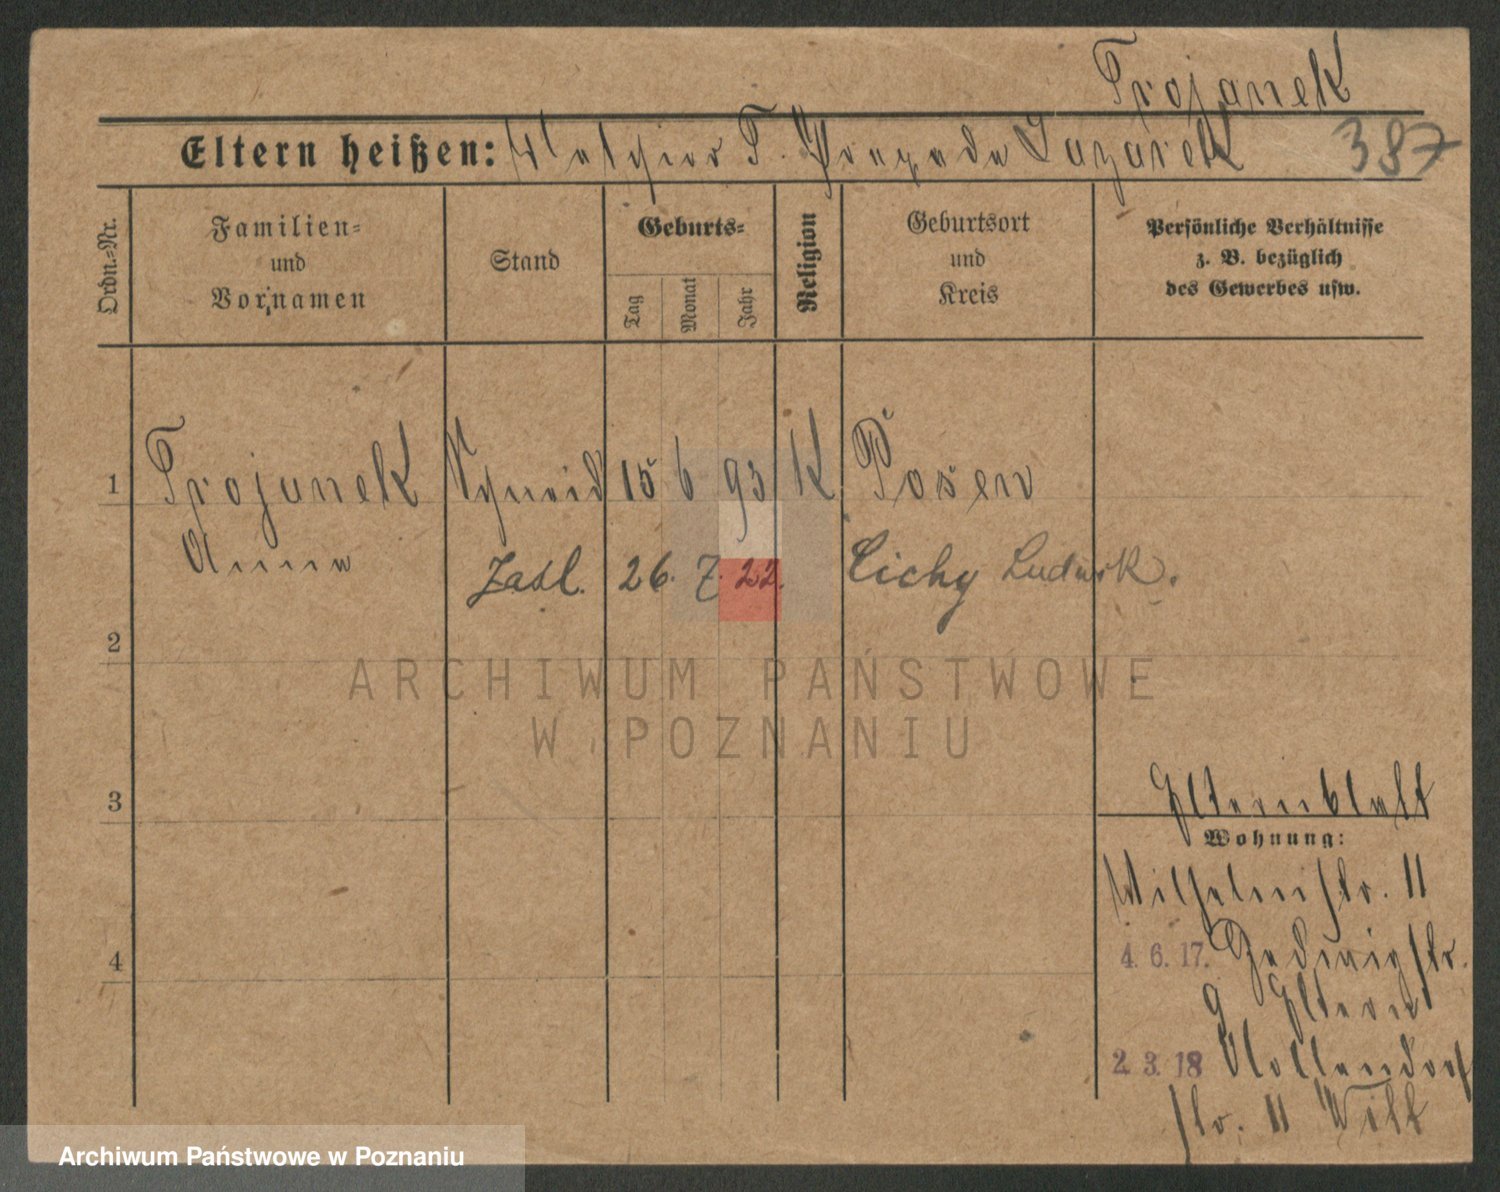 Trojanek
Eltern heißen: Melchior T. Prazeda Lazarek 387
Ordn.-Nr.
Familien-
und
Vornamen
Stand
Geburts-
Tag
Monat
Jahr
Religion
Geburtsort
und
Kreis
Persönliche Verhältnisse
z. B. bezüglich
des Gewerbes usw.
1 Trojanek Schneid 15 6 93 K Posen
Anna
Zasl. 26. 7. 22. Cichy Ludwik.
2
ARCHIWUM PAŃSTWOWE
W POZNANIU
3
Elternblatt
Wohnung:
Wilhelmstr. 11
4
4. 6. 17. Hedwigstr.
9 Eltern
2. 3. 18 Nollendorf
str. 11 Witt
Archiwum Państwowe w Poznaniu